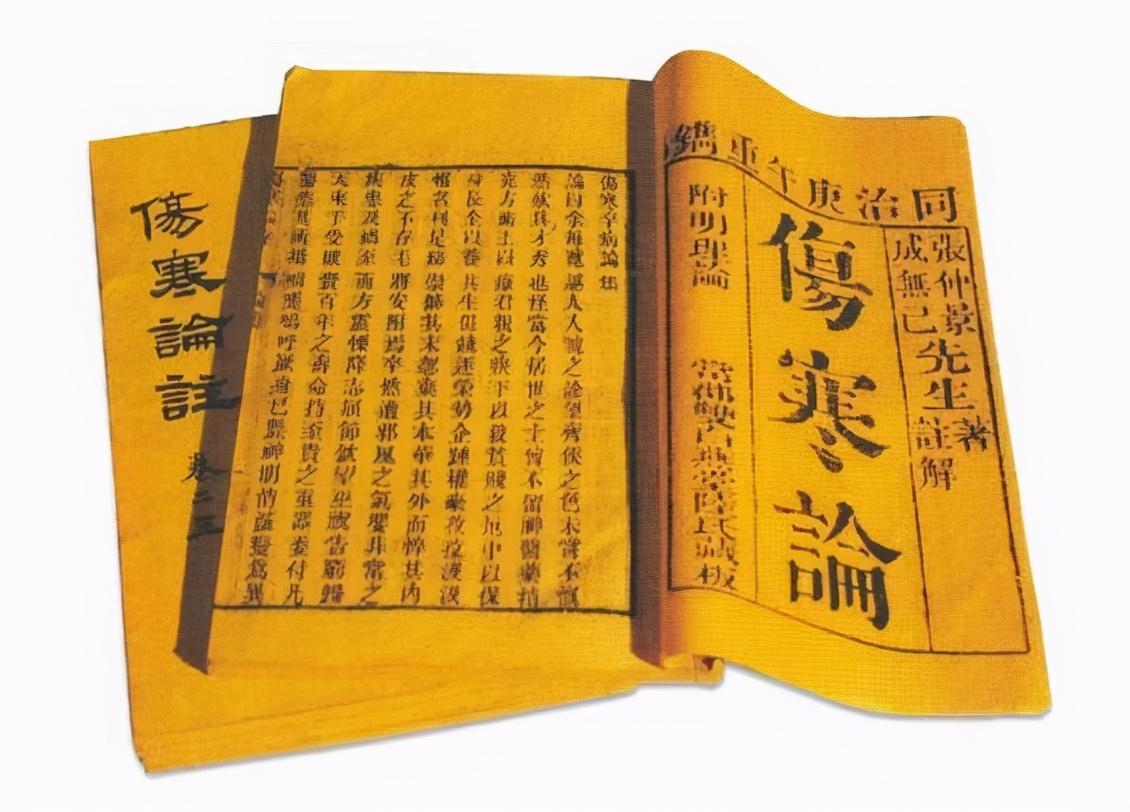 同治庚午重鐫
張仲景先生著
成無己先生註解
傷寒論
附明理論
常郡雙白燕堂陸氏藏板
傷寒卒病論集
論曰余每覽越人入虢之診望齊侯之色未嘗不慨
然歎其才秀也怪當今居世之士曾不留神醫藥精
究方術上以療君親之疾下以救貧賤之厄中以保
身長全以養其生但競逐榮勢企踵權豪孜孜汲汲
惟名利是務崇飾其末忽棄其本華其外而悴其內
皮之不存毛將安附焉卒然遭邪風之氣嬰非常之
疾患及禍至而方震慄降志屈節欽望巫祝告窮歸
天束手受敗賫百年之壽命持至貴之重器委付凡
醫恣其所措咄嗟嗚呼厥身已斃神明消滅變為異
傷寒論註
卷